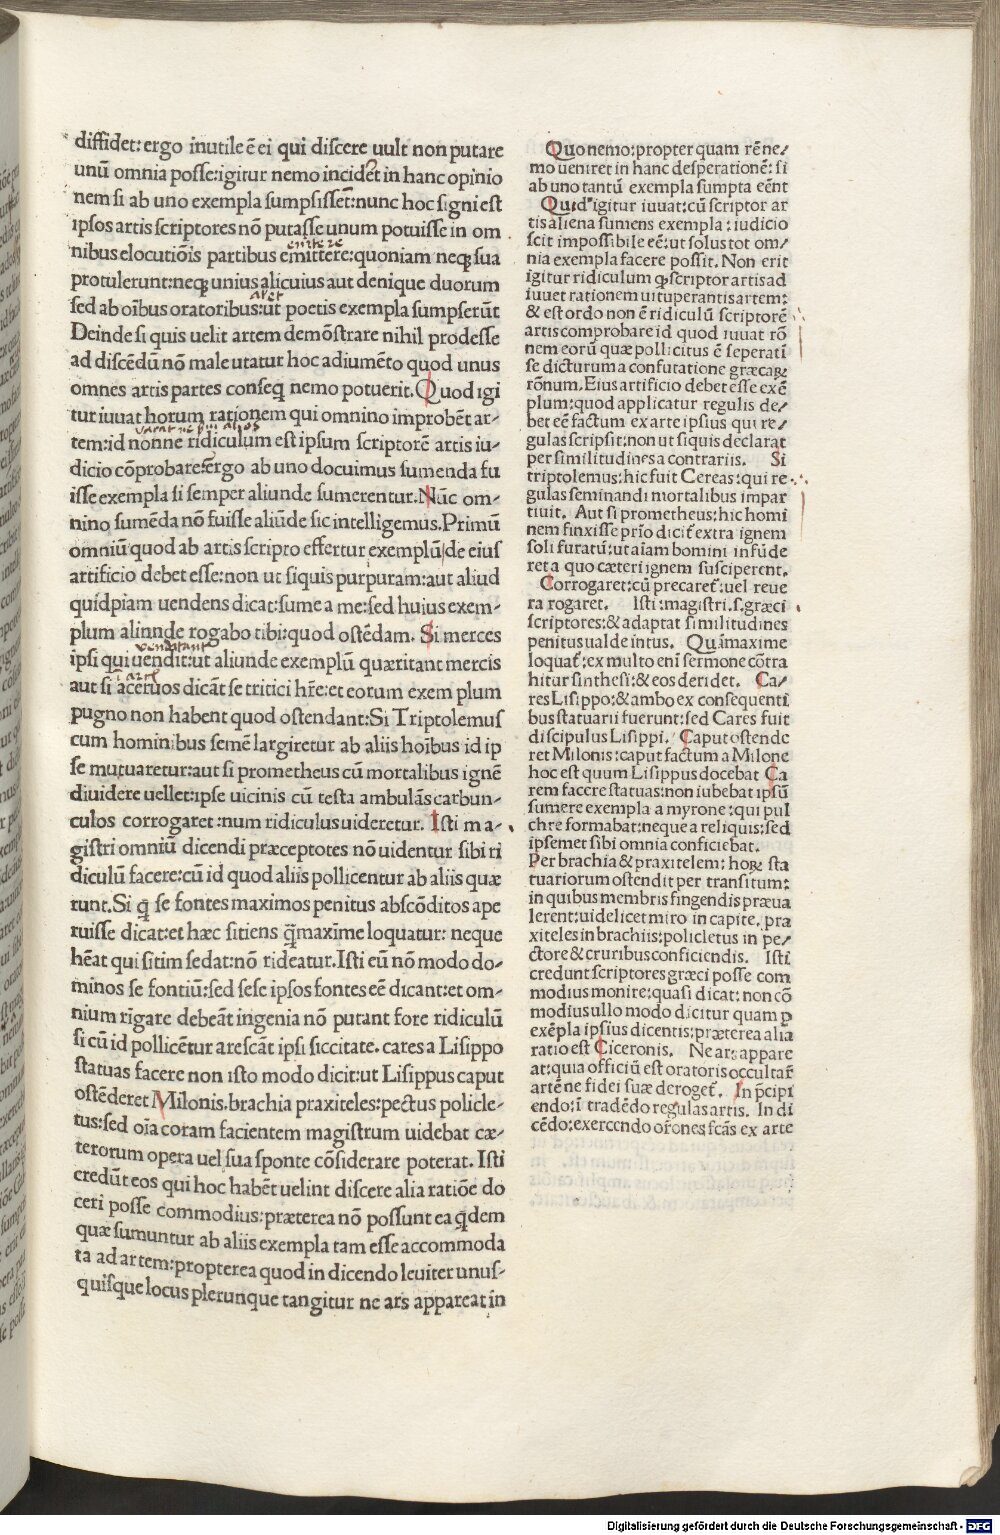 diffidet: ergo inutile ē ei qui discere uult non putare
unū omnia posse:igitur nemo incidet in hanc opinio
nem si ab uno exempla sumpsissēt:nunc hoc signi est
ipsos artis scriptores nō putasse unum potuisse in om
nibus elocutiōis partibus emittere:quoniam neqꝫ sua
protulerunt:neqꝫ unius alicuius aut denique duorum
sed ab oībus oratoribus:ut poetis exempla sumpserūt
Deinde si quis uelit artem demōstrare nihil prodesse
ad discēdū nō male utatur hoc adiumēto quod unus
omnes artis partes conseq nemo potuerit. Quod igi
tur iuuat horum rationem qui omnino improbēt ar-
tem:id nonne ridiculum est ipsum scriptorē artis iu-
dicio cōprobare?ergo ab uno docuimus sumenda fu
isse exempla si semper aliunde sumerentur. Nūc om-
nino sumēda nō fuisse aliūde sic intelligemus. Primū
omniū quod ab artis scripto effertur exemplū de eius
artificio debet esse:non ut siquis purpuram:aut aliud
quidpiam uendens dicat:sume a me:sed huius exem-
plum alinnde rogabo tibi:quod ostēdam. Si merces
ipsi qui uendit:ut aliunde exemplū quæritant mercis
aut si aceruos dicāt se tritici hr̄e:et eorum exem plum
pugno non habent quod ostendant:Si Triptolemus
cum hominibus semē largiretur ab aliis hoībus id ip
se mutuaretur:aut si prometheus cū mortalibus ignē
diuidere uellet:ipse uicinis cū testa ambulās carbun-
culos corrogaret:num ridiculus uideretur. Isti ma-
gistri omniū dicendi præceptotes nō uidentur sibi ri
diculū facere:cū id quod aliis pollicentur ab aliis quæ
runt. Si q̄ se fontes maximos penitus abscōditos ape
ruisse dicat:et hæc sitiens q̄maxime loquatur: neque
hēat qui sitim sedat:nō rideatur. Isti eū nō modo do-
minos se fontiū:sed sese ipsos fontes eē dicant:et om-
nium rīgare debeāt ingenia nō putant fore ridiculū
si cū id pollicētur arescāt ipsi siccitate. cares a Lisippo
statuas facere non isto modo dicit:ut Lisippus caput
ostēderet Milonis. brachia praxiteles:pectus policle-
tus:sed oīa coram facientem magistrum uidebat cæ-
terorum opera uel sua sponte cōsiderare poterat. Isti
credūt eos qui hoc habēt uelint discere alia ratiōe do
ceri posse commodius:præterea nō possunt ea q̄dem
quæ sumuntur ab aliis exempla tam esse accommoda
ta ad artem:propterea quod in dicendo leuiter unus-
quisque locus plerunque tangitur ne ars appareat in
Quo nemo:propter quam rē ne/
mo ueniret in hanc desperationē: si
ab uno tantū exempla sumpta eēnt
Quid igitur iuuat:cū scriptor ar
tis aliena sumens exempla: iudicio
scit impossibile eē:ut solus tot om/
nia exempla facere possit. Non erit
igitur ridiculum ꝙ scriptor artis ad
iuuet rationem uituperantis artem:
& est ordo non ē ridiculū scriptorē
artis comprobare id quod iuuat rō
nem eorū quæ pollicitus ē seperati
se dicturum a confutatione græcaꝝ
rōnum. Eius artificio debet esse exē
plum:quod applicatur regulis de/
bet eē factum ex arte ipsius qui re/
gulas scripsit:non ut si quis declarat
per similitudines a contrariis. Si
triptolemus: hic fuit Cereas: qui re
gulas seminandi mortalibus impar
tiuit. Aut si prometheus: hic homi
nem finxisse prīo dicit extra ignem
soli furatū:ut aiam bomini infūde
ret a quo cæteri ignem susciperent.
Corrogaret:cū precaret:uel reue
ra rogaret. Isti:magistri.s.græci
scriptores:& adaptat similitudines
penitus ualde intus. Quāmaxime
loquat:ex multo enī sermone cōtra
hitur sinthesi:& eos deridet. Ca/
res Lisippo:& ambo ex consequenti
bus statuarii fuerunt:sed Cares fuit
discipulus Lisippi. Caput ostende
ret Milonis: caput factum a Milone
hoc est quum Lisippus docebat Ca
rem facere statuas:non iubebat ipsū
sumere exempla a myrone:qui pul
chre formabat:neque a reliquis:sed
ipsemet sibi omnia conficiebat.
Per brachia & praxitelem: hoꝝ sta
tuariorum ostendit per transitum:
in quibus membris fingendis præua
lerent:uidelicet miro in capite. pra
xiteles in brachiis:policletus in pe/
ctore & cruribus conficiendis. Isti
credunt scriptores græci posse com
modius monire:quasi dicat: non cō
modius ullo modo dicitur quam ꝑ
exēpla ipsius dicentis:præterea alia
ratio est Ciceronis. Ne ars appare
at:quia officiū est oratoris occultar̄
artē ne fidei suæ deroget. In p̄cipi
endo:ī tradēdo regulas artis. In di
cēdo:exercendo ōrones fcās ex arte
Digitalisierung gefördert durch die Deutsche Forschungsgemeinschaft - DFG